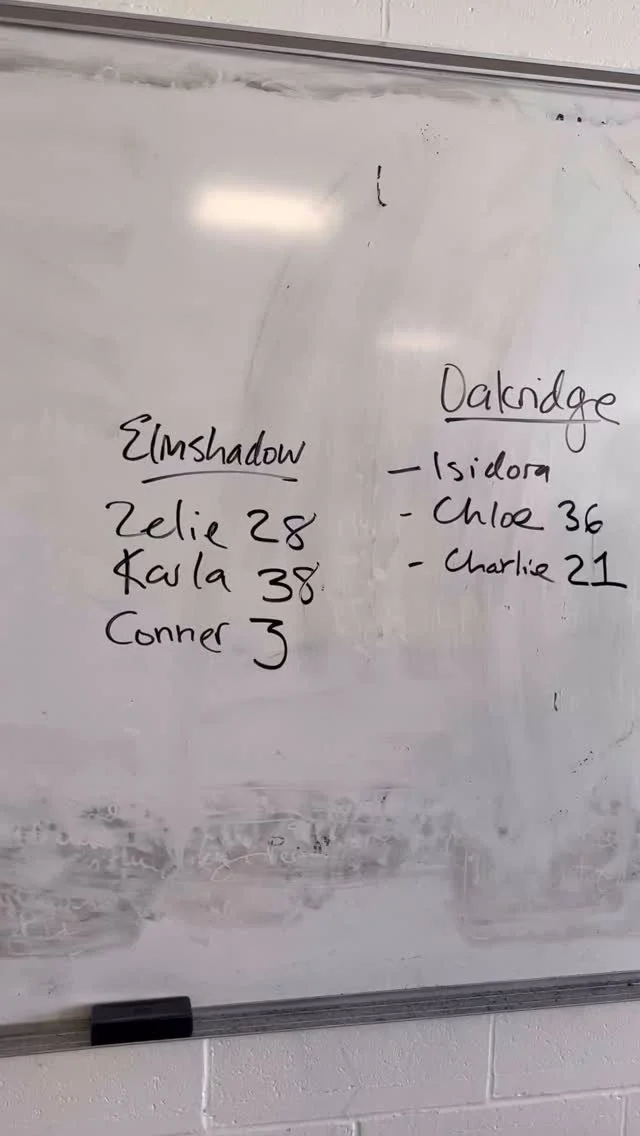 Elmshadow
Zelie 28
Karla 38
Conner 3
Oakridge
- Isidora
- Chloe 36
- Charlie 21